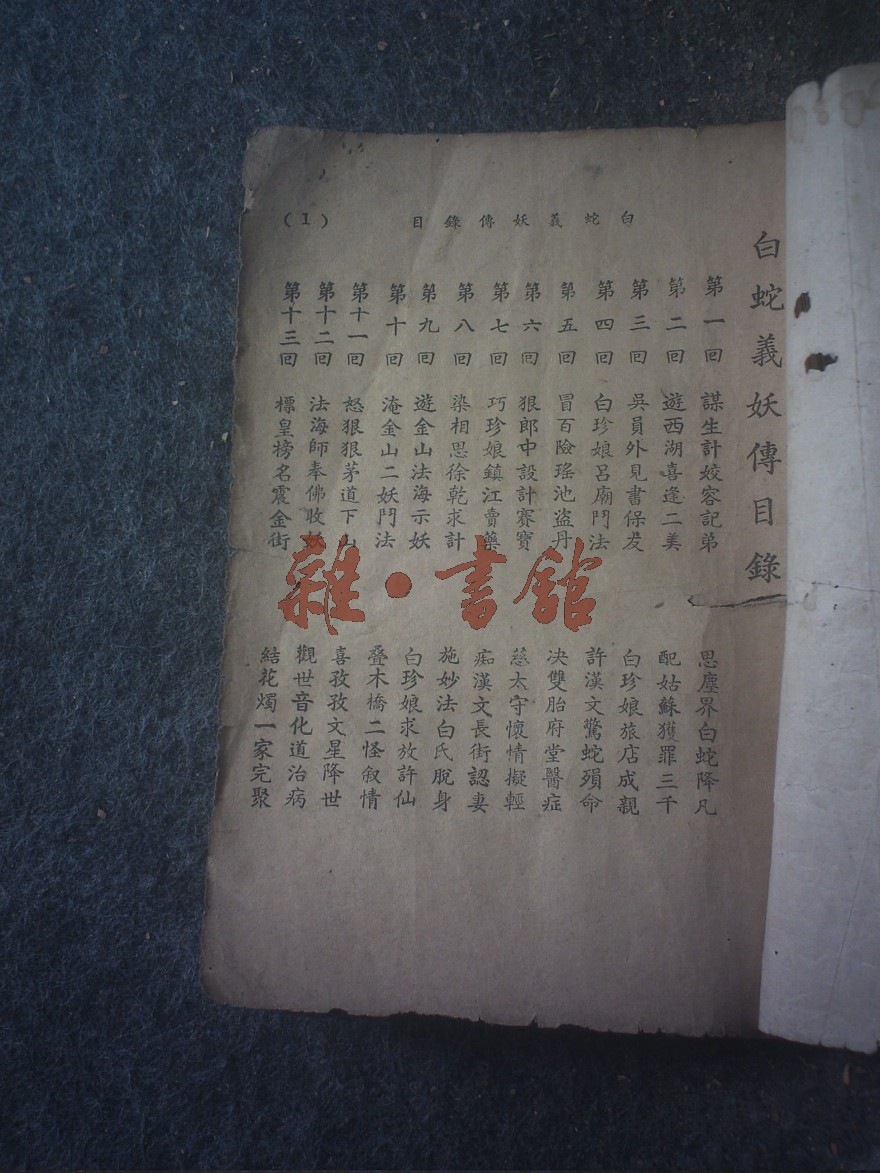 白蛇義妖傳目錄
白蛇義妖傳錄目
(1)
第一回 謀生計姣容記弟 思塵界白蛇降凡
第二回 遊西湖喜逢二美 配姑蘇獲罪三千
第三回 吳員外見書保友 白珍娘旅店成親
第四回 白珍娘呂廟鬥法 許漢文驚蛇殞命
第五回 冒百險瑤池盜丹 决雙胎府堂醫症
第六回 狠郎中設計賽寶 慈太守懷情擬輕
第七回 巧珍娘鎮江賣藥 痴漢文長街認妻
第八回 染相思徐乾求計 施妙法白氏脫身
第九回 遊金山法海示妖 白珍娘求放許仙
第十回 淹金山二妖鬥法 叠木橋二怪敘情
第十一回 怒狠狠茅道下山 喜孜孜文星降世
第十二回 法海師奉佛收妖 觀世音化道治病
第十三回 標皇榜名震金街 結花燭一家完聚
雜·書館